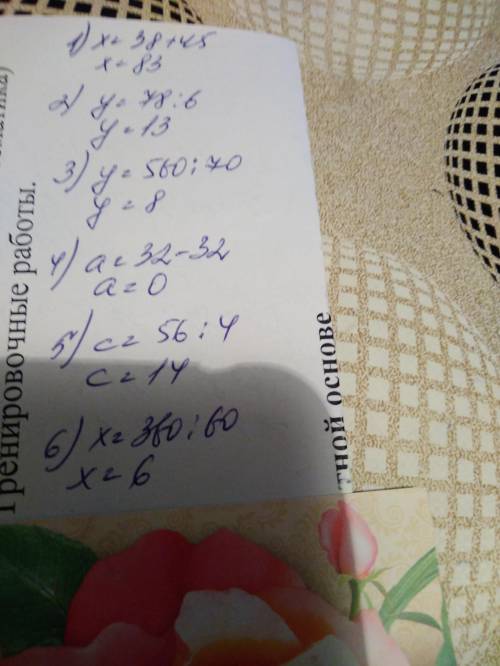 1) x = 38+45
x = 83
2) y = 78:6
y = 13
3) y = 560:70
y = 8
4) a = 32-32
a = 0
5) c = 56:4
c = 14
6) x = 360:60
x = 6
Тренировочные работы.
тной основе